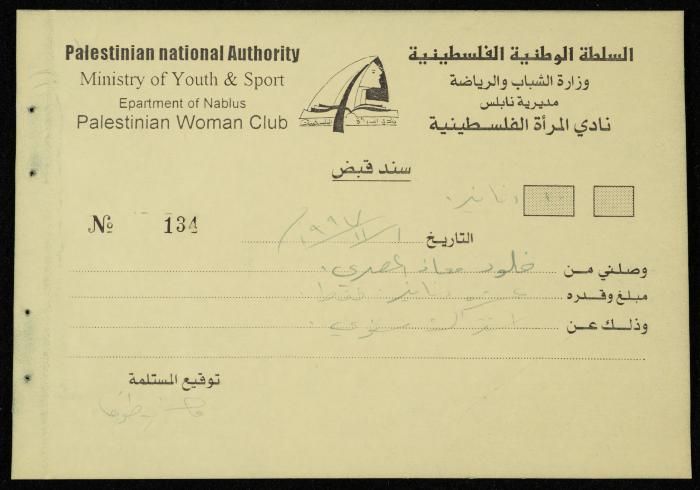 Palestinian national Authority
السلطة الوطنية الفلسطينية
Ministry of Youth & Sport
وزارة الشباب والرياضة
Epartment of Nablus
مديرية نابلس
Palestinian Woman Club
نادي المرأة الفلسطينية
سند قبض
دنانير
№ 134
التاريخ ١٩٩٧/١١/١
وصلني من خلود معاذ المصري.
مبلغ وقدره دنانير فقط
وذلك عن اشتراك سنوي.
توقيع المستلمة